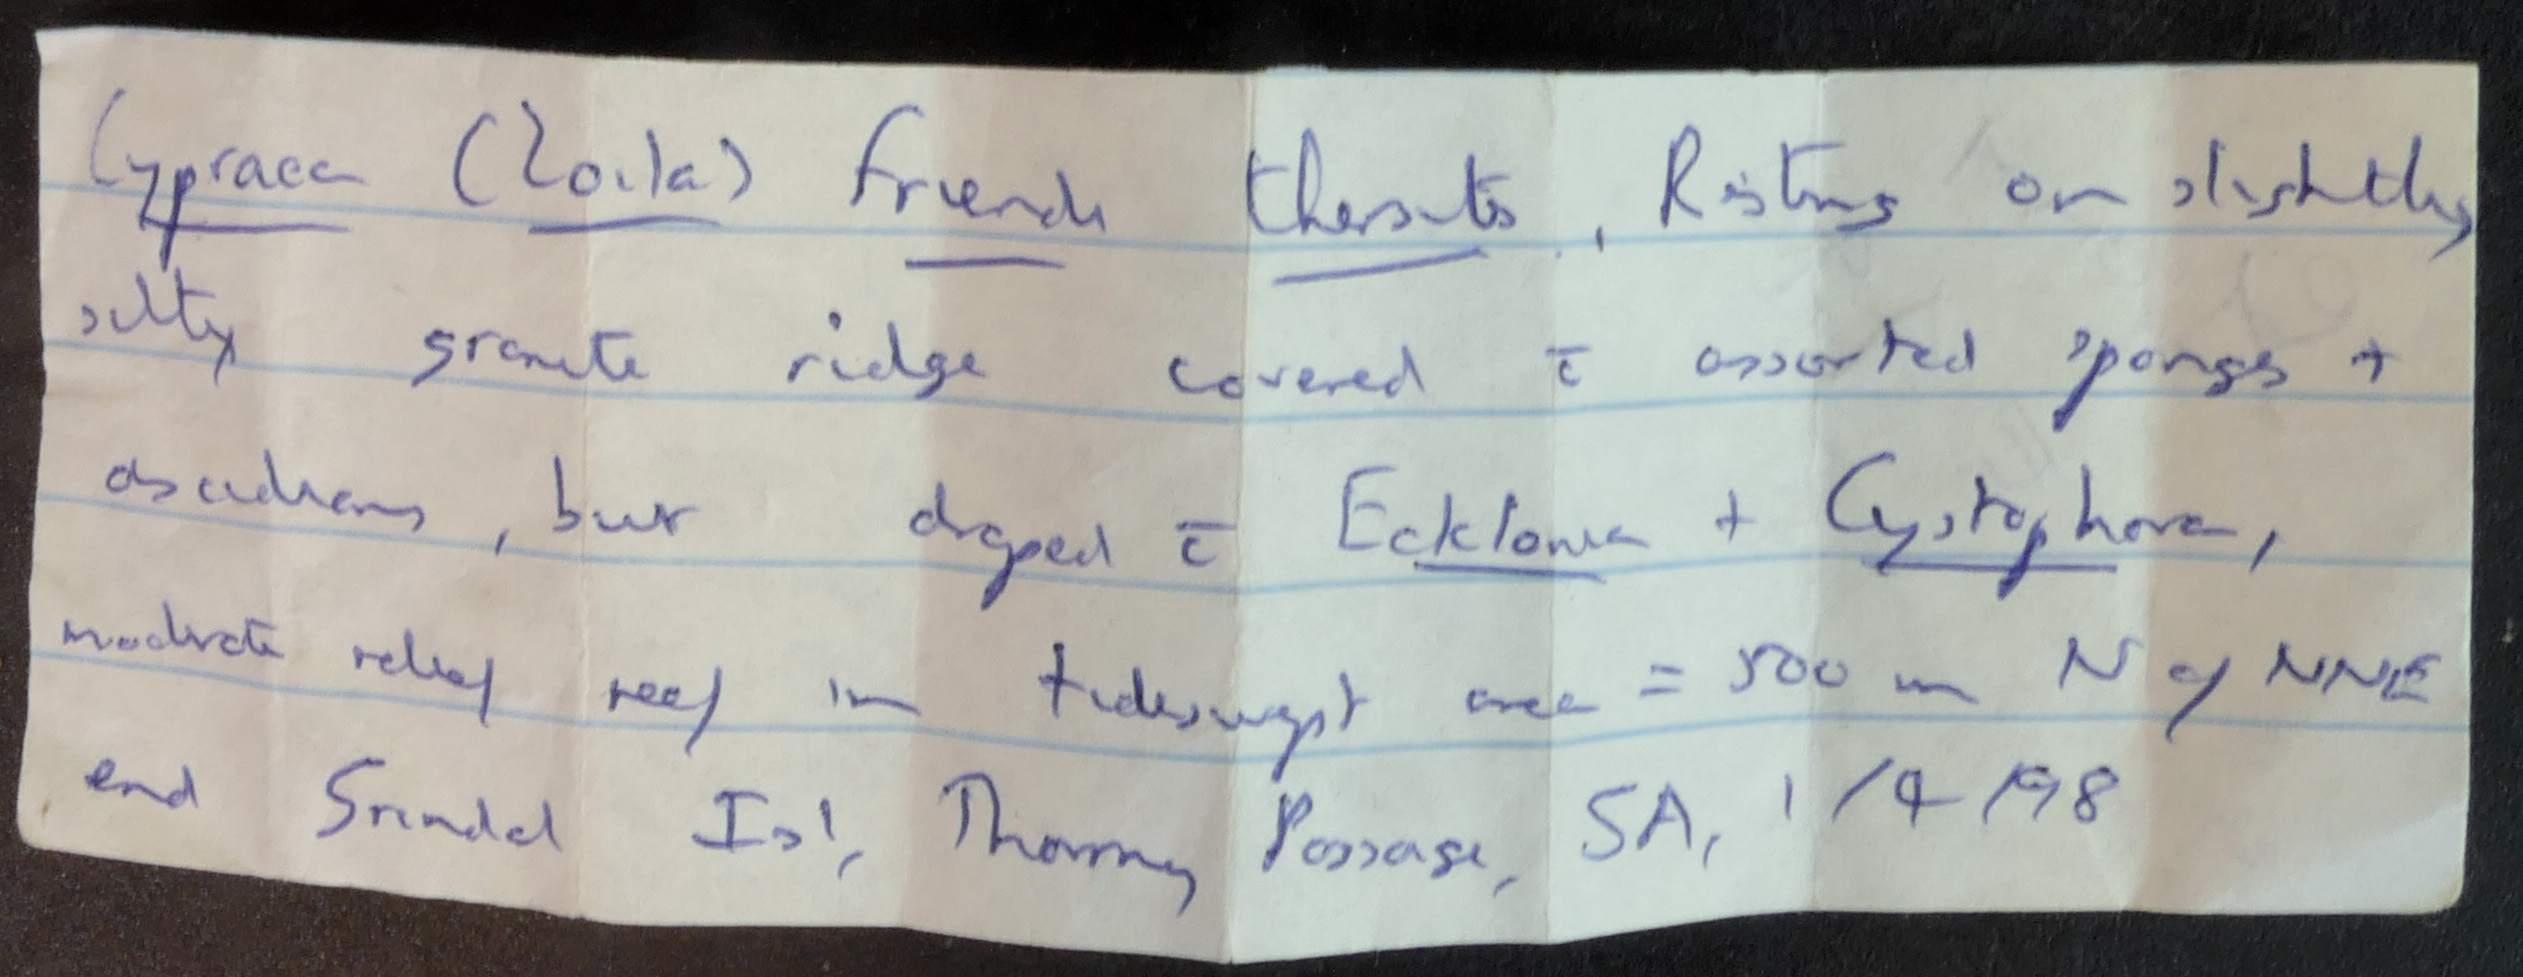 Cypraea (Zoila) friendi thersites, Resting on slightly
silty granite ridge covered c̄ assorted sponges +
ascidians, but draped c̄ Ecklonia + Cystophora,
moderate relief reef in tideswept area = 500 m N of NNE
end Grindal Isl, Thorny Passage, SA, 1/4/98